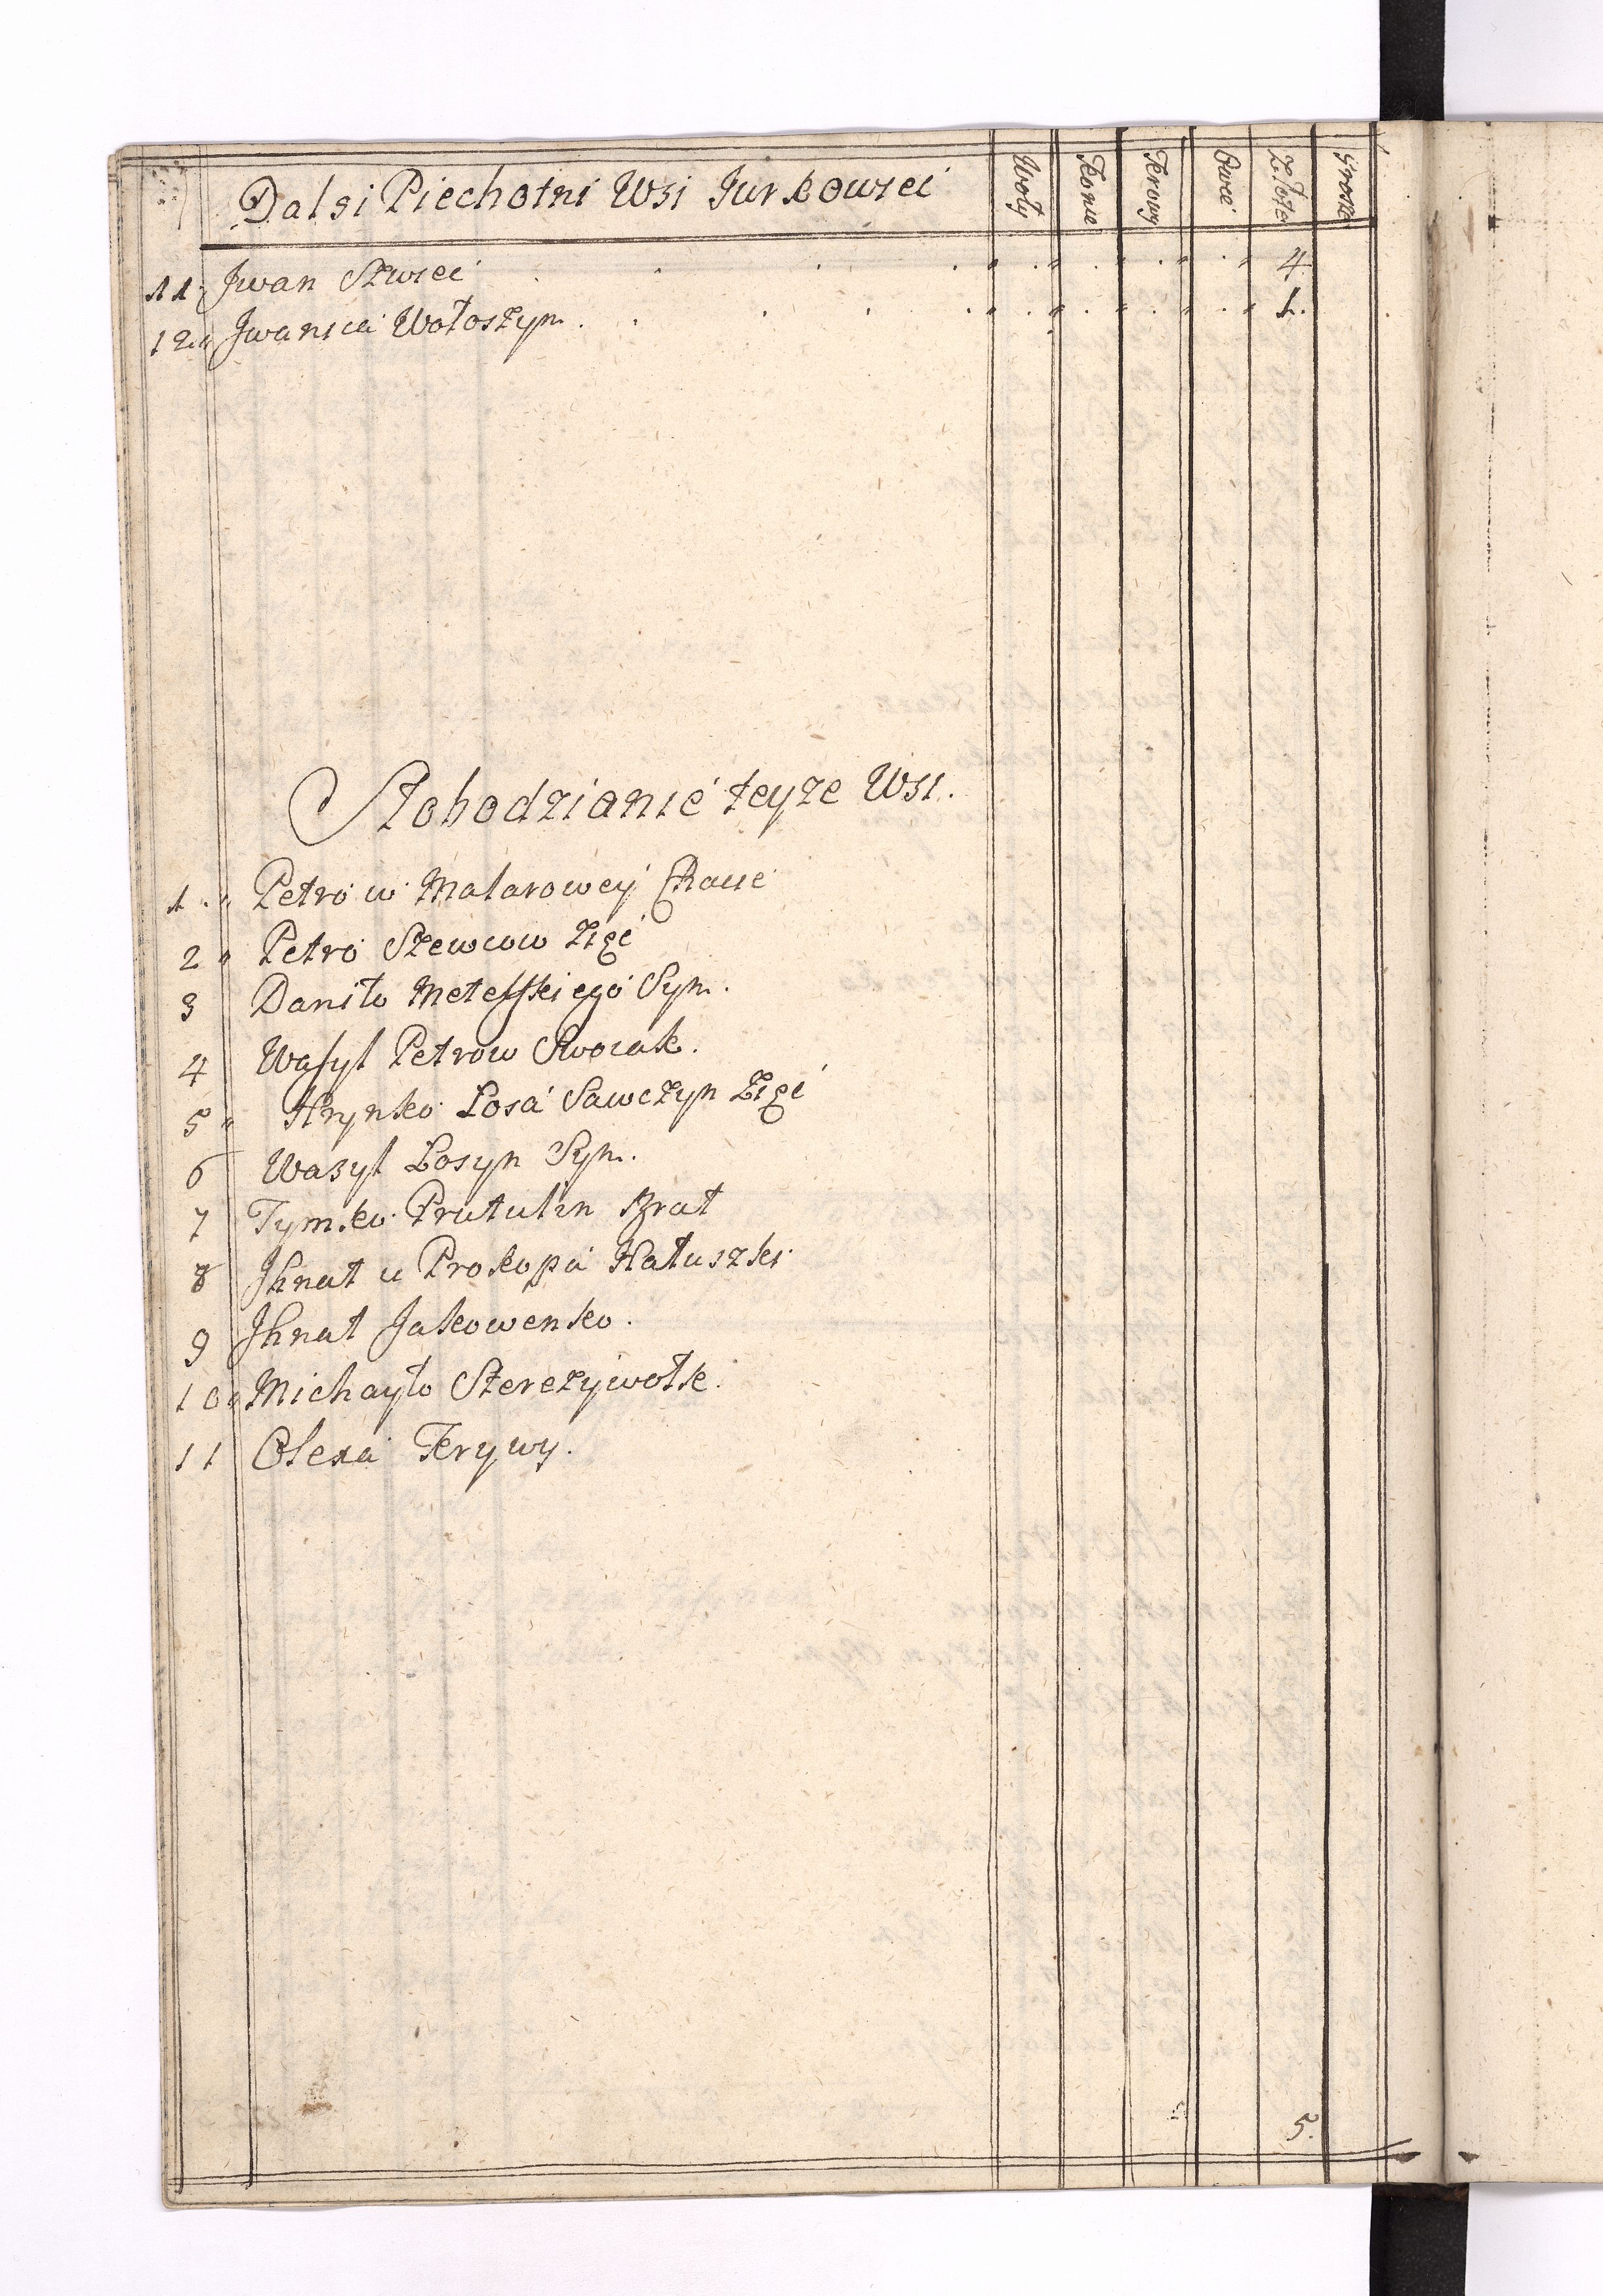 Dalsi Piechotni Wsi Jurkowiec Woły Konie Krowy Owce Złote Grosze
11 Jwan Szwiec 4.
12 Jwanica Wołoszyn 1.
Słobodzianie teyze Wsi.
1 Petro w Malarowey Chacie
2 Petro Szewcow Zięć
3 Daniło Metelskiego Syn.
4 Wasyl Petrow Swoiak.
5 Hrynko Łosa Sawczyn Zięć
6 Wasyl Łosyn Syn.
7 Tymko Prutulin Brat
8 Jhnat u Prokopa Hałuszki
9 Jhnat Jakowenko.
10 Michayło Szereżywołk.
11 Olexa Krywy.
5.